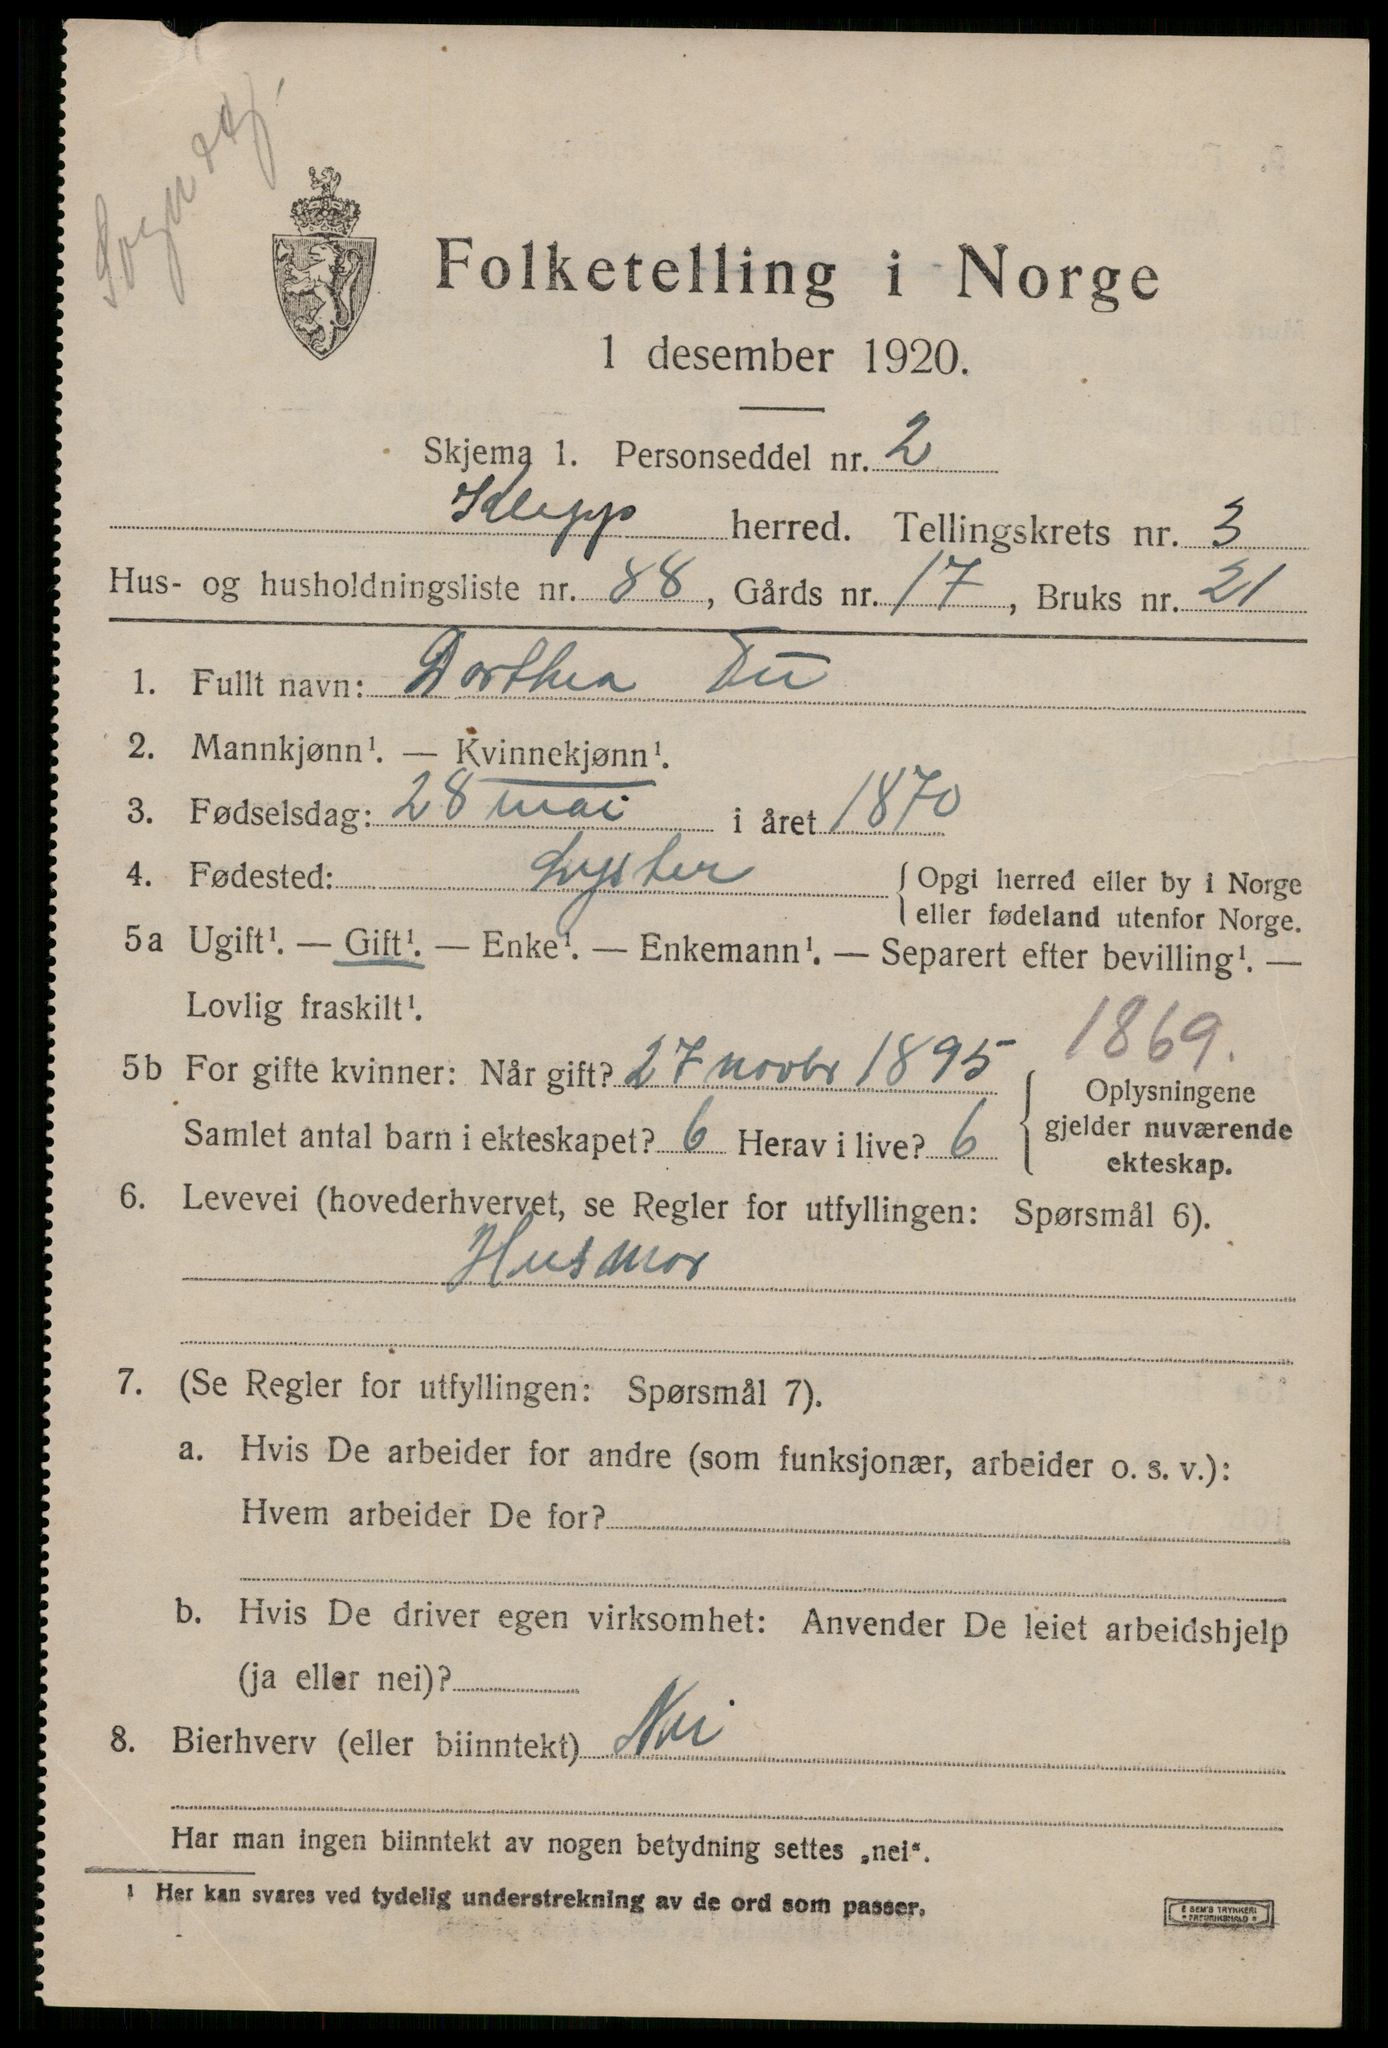 Sogn og Fj.
Folketelling i Norge
1 desember 1920.
Skjema 1. Personseddel nr. 2
Klepp herred. Tellingskrets nr. 3
Hus- og husholdningsliste nr. 88, Gårds nr. 17, Bruks nr. 21
1. Fullt navn: Dorthea Tu
2. Mannkjønn¹. — Kvinnekjønn¹.
3. Fødselsdag: 28 mai i året 1870
4. Fødested: Lyster { Opgi herred eller by i Norge
eller fødeland utenfor Norge.
5a Ugift¹. — Gift¹. — Enke¹. — Enkemann¹. — Separert efter bevilling¹. —
Lovlig fraskilt¹.
1869.
5b For gifte kvinner: Når gift? 27 novbr 1895
Samlet antal barn i ekteskapet? 6 Herav i live? 6
Oplysningene
gjelder nuværende
ekteskap.
6. Levevei (hovederhvervet, se Regler for utfyllingen: Spørsmål 6).
Husmor
7. (Se Regler for utfyllingen: Spørsmål 7).
a. Hvis De arbeider for andre (som funksjonær, arbeider o. s. v.):
Hvem arbeider De for?
b. Hvis De driver egen virksomhet: Anvender De leiet arbeidshjelp
(ja eller nei)?
8. Bierhverv (eller biinntekt) Nei
Har man ingen biinntekt av nogen betydning settes „nei“.
1 Her kan svares ved tydelig understrekning av de ord som passer.
E SEM'S TRYKKERI
FREDRIKSHALD